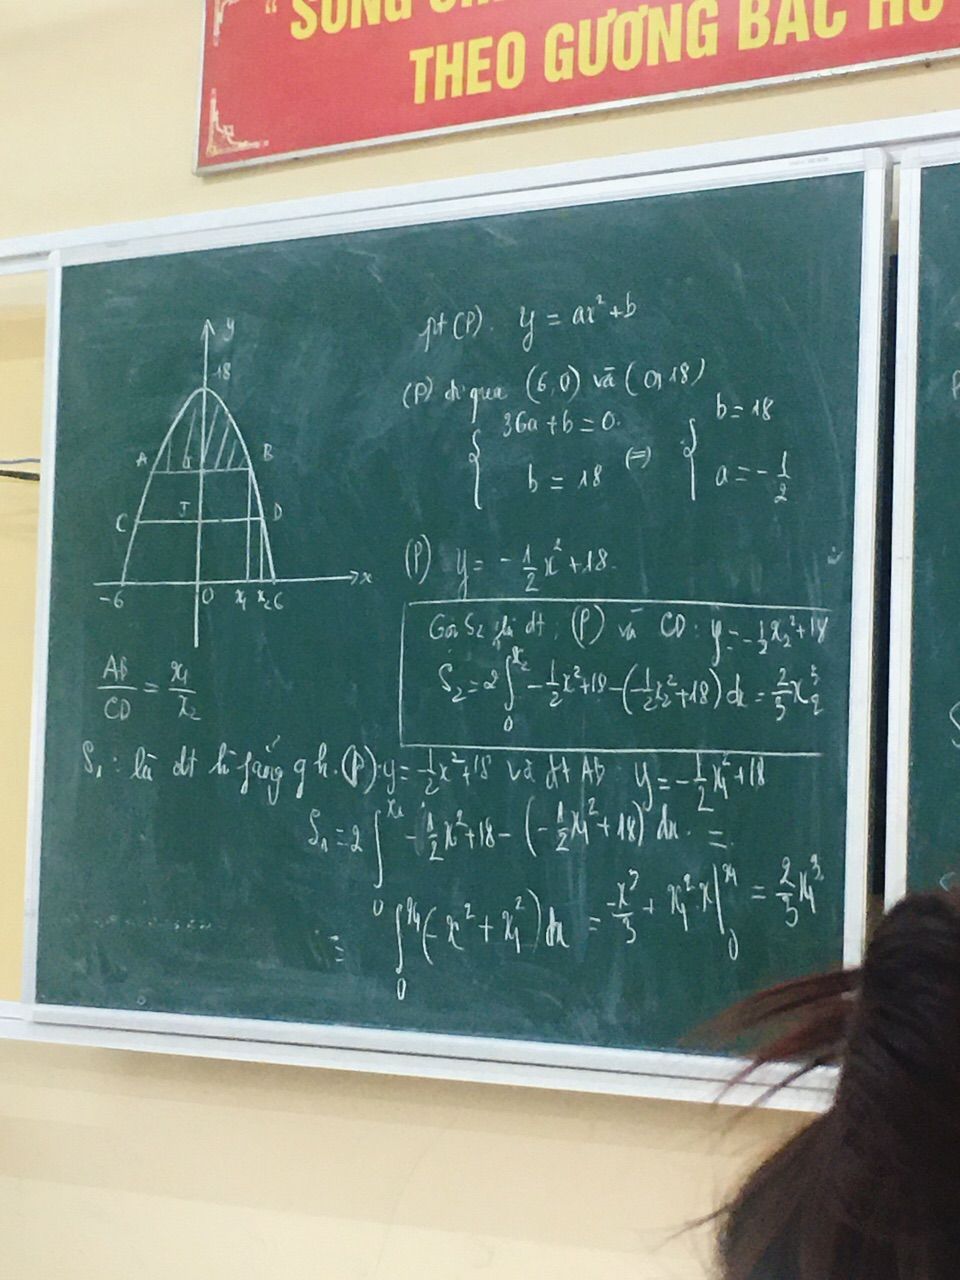 “ SỐNG
THEO GƯƠNG BÁC HỒ
pt (P). y = ax² + b
(P) đi qua (6, 0) và (0, 18)
36a + b = 0.
b = 18
(=)
b = 18
a = -1/2
(P) y = -1/2x² + 18.
Gọi S₂ là dt (P) và CD: y = -1/2x₂² + 18
S₂ = 2∫₀^x₂ -1/2x² + 18 - (-1/2x₂² + 18) dx = 2/3x₂³
y
18
A
B
C
J
D
-6
O
x₁
x₂
6
x
AB/CD = x₁/x₂
S₁: là dt h phẳng g h. (P): y = -1/2x² + 18 và đt AB y = -1/2x₁² + 18
S₁ = 2∫₀^x₁ -1/2x² + 18 - (-1/2x₁² + 18) dx =
= ∫₀^x₁ (-x² + x₁²) dx = -x³/3 + x₁².x |₀^x₁ = 2/3x₁³